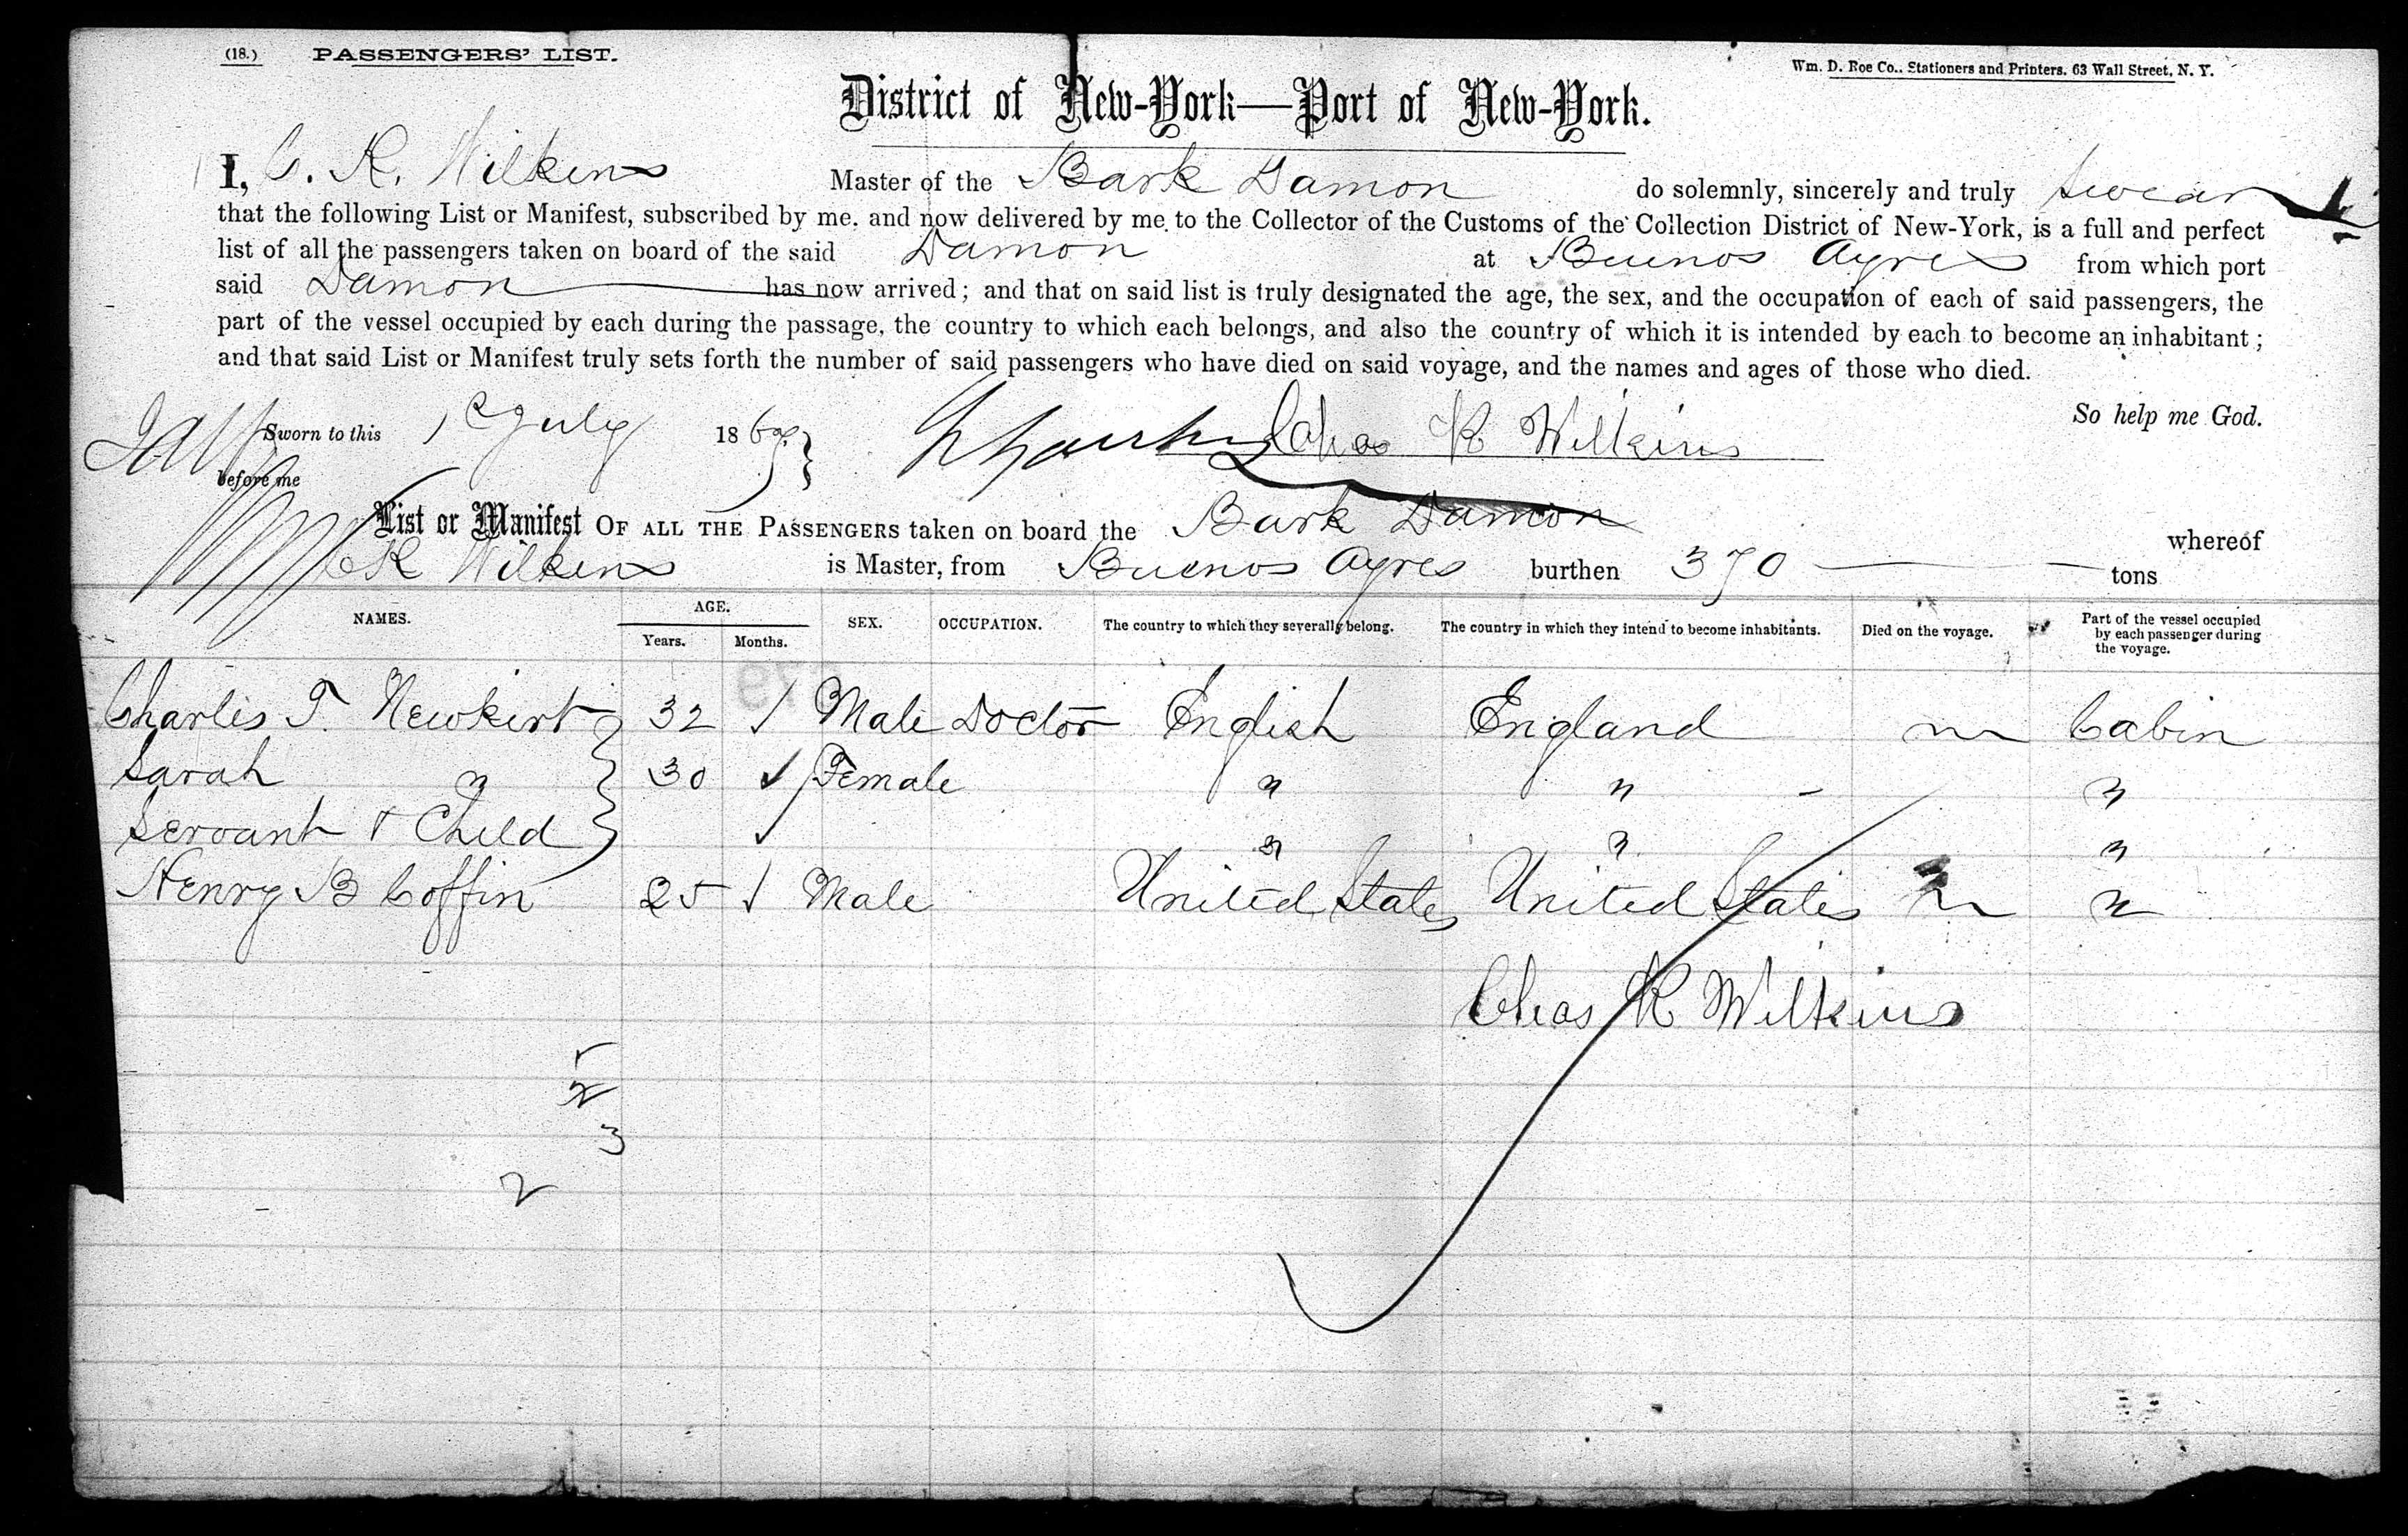 (18.) PASSENGERS' LIST.
Wm. D. Roe Co., Stationers and Printers, 63 Wall Street, N. Y.
District of New-York—Port of New-York.
I, C. R. Wilkins Master of the Bark Damon do solemnly, sincerely and truly swear
that the following List or Manifest, subscribed by me, and now delivered by me to the Collector of the Customs of the Collection District of New-York, is a full and perfect
list of all the passengers taken on board of the said Damon at Buenos Ayres from which port
said Damon has now arrived; and that on said list is truly designated the age, the sex, and the occupation of each of said passengers, the
part of the vessel occupied by each during the passage, the country to which each belongs, and also the country of which it is intended by each to become an inhabitant;
and that said List or Manifest truly sets forth the number of said passengers who have died on said voyage, and the names and ages of those who died.
So help me God.
Sworn to this 1 July 1869 Chas R Wilkins
before me
List or Manifest OF ALL THE PASSENGERS taken on board the Bark Damon whereof
C R Wilkins is Master, from Buenos Ayres burthen 370 tons
NAMES. AGE. Years. Months. SEX. OCCUPATION. The country to which they severally belong. The country in which they intend to become inhabitants. Died on the voyage. Part of the vessel occupied by each passenger during the voyage.
Charles T. Newkirk 32 Male Doctor English England Cabin
Sarah " 30 Female " " "
Servant & Child " " "
Henry B Coffin 25 Male United States United States "
Chas R Wilkins
2
3
2